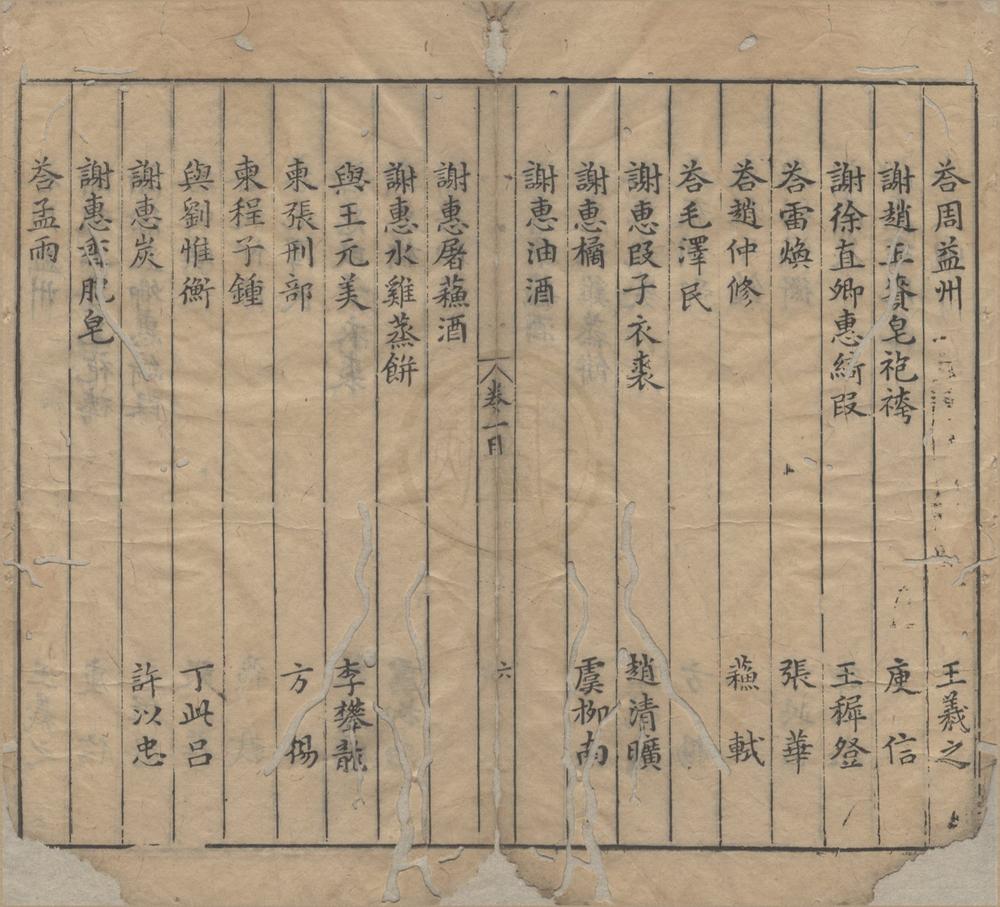 荅周益州 王羲之
謝趙王賚皂袍袴 庾信
謝徐直卿惠綺叚 王穉登
荅雷煥 張華
荅趙仲修 蘓軾
荅毛澤民
謝惠叚子衣裘 趙清曠
謝惠橘 虞柳南
謝惠油酒
卷一目 六
謝惠屠蘓酒
謝惠水雞蒸餅
與王元美 李攀龍
柬張刑部 方揚
柬程子鍾
與劉惟衡 丁此呂
謝惠炭 許以忠
謝惠香肥皂
荅孟雨